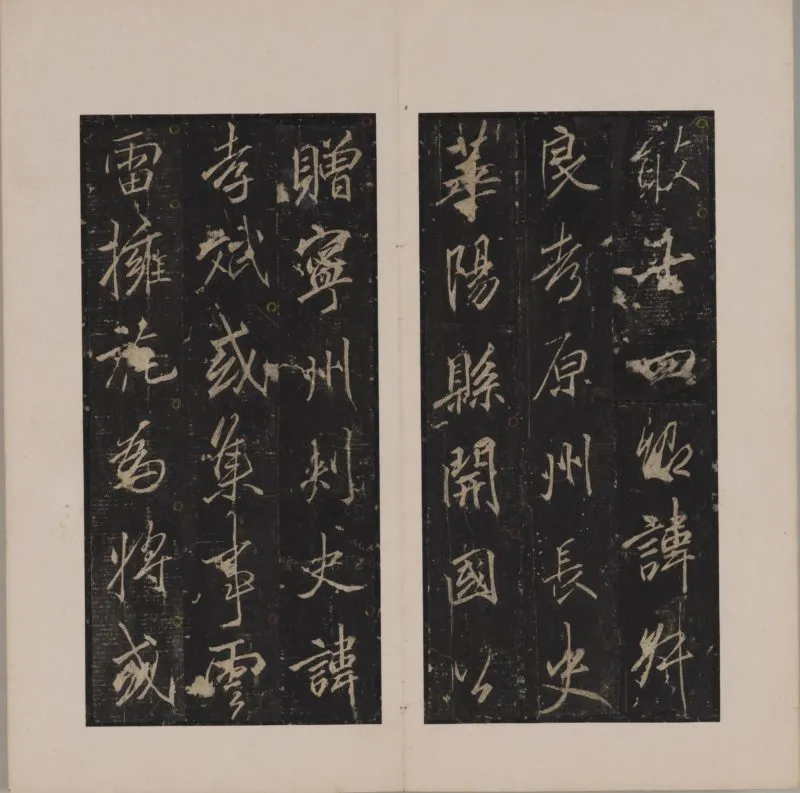 四卿諱叔
良考原州長史
華陽縣開國公
贈寧州刺史諱
孝斌或集事雲
雷擁旄為將或